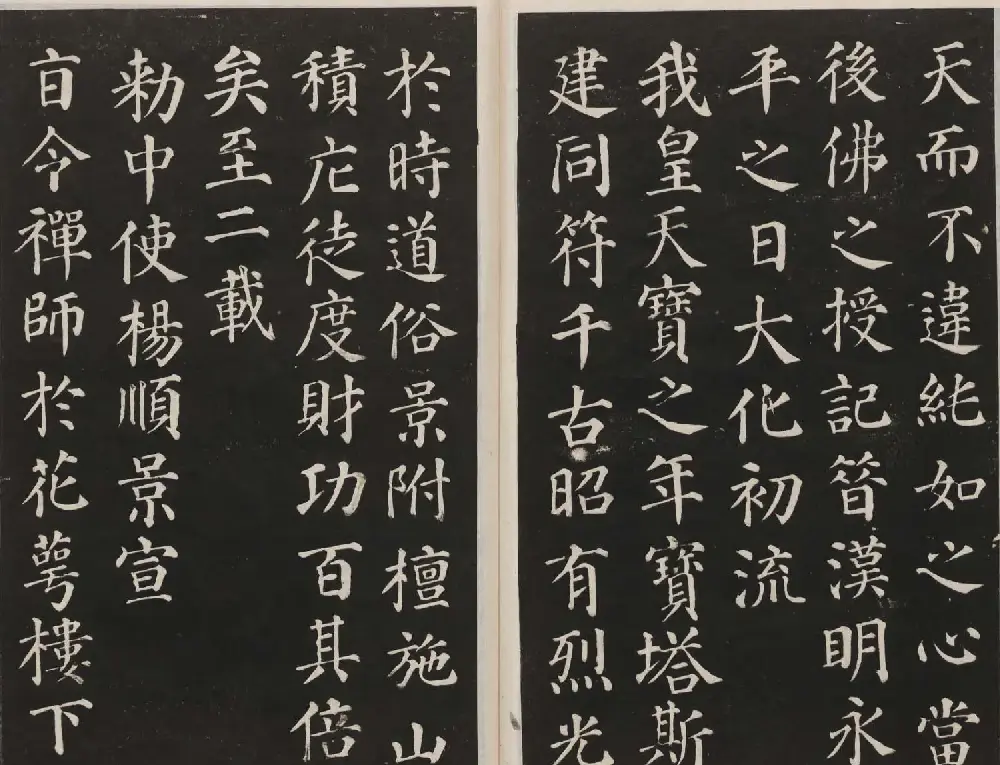 天而不違純如之心當
後佛之授記昔漢明永
平之日大化初流
我皇天寶之年寶塔斯
建同符千古昭有烈光
於時道俗景附檀施山
積庀徒度財功百其倍
矣至二載
勑中使楊順景宣
旨令禪師於花萼樓下